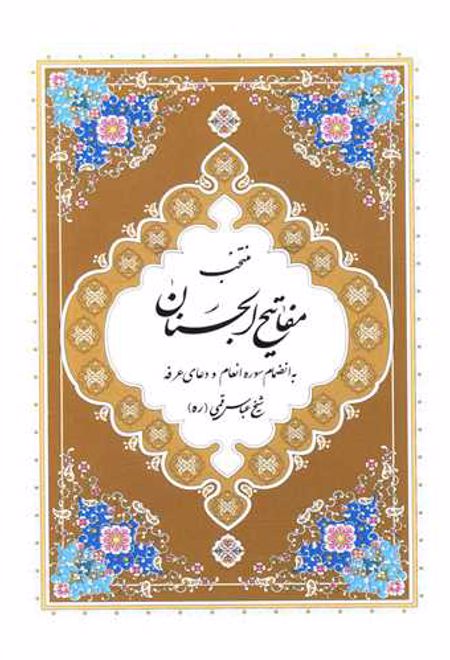 منتخب
مفاتیح الجنان
به انضمام سوره انعام و دعای عرفه
شیخ عباس قمی (ره)